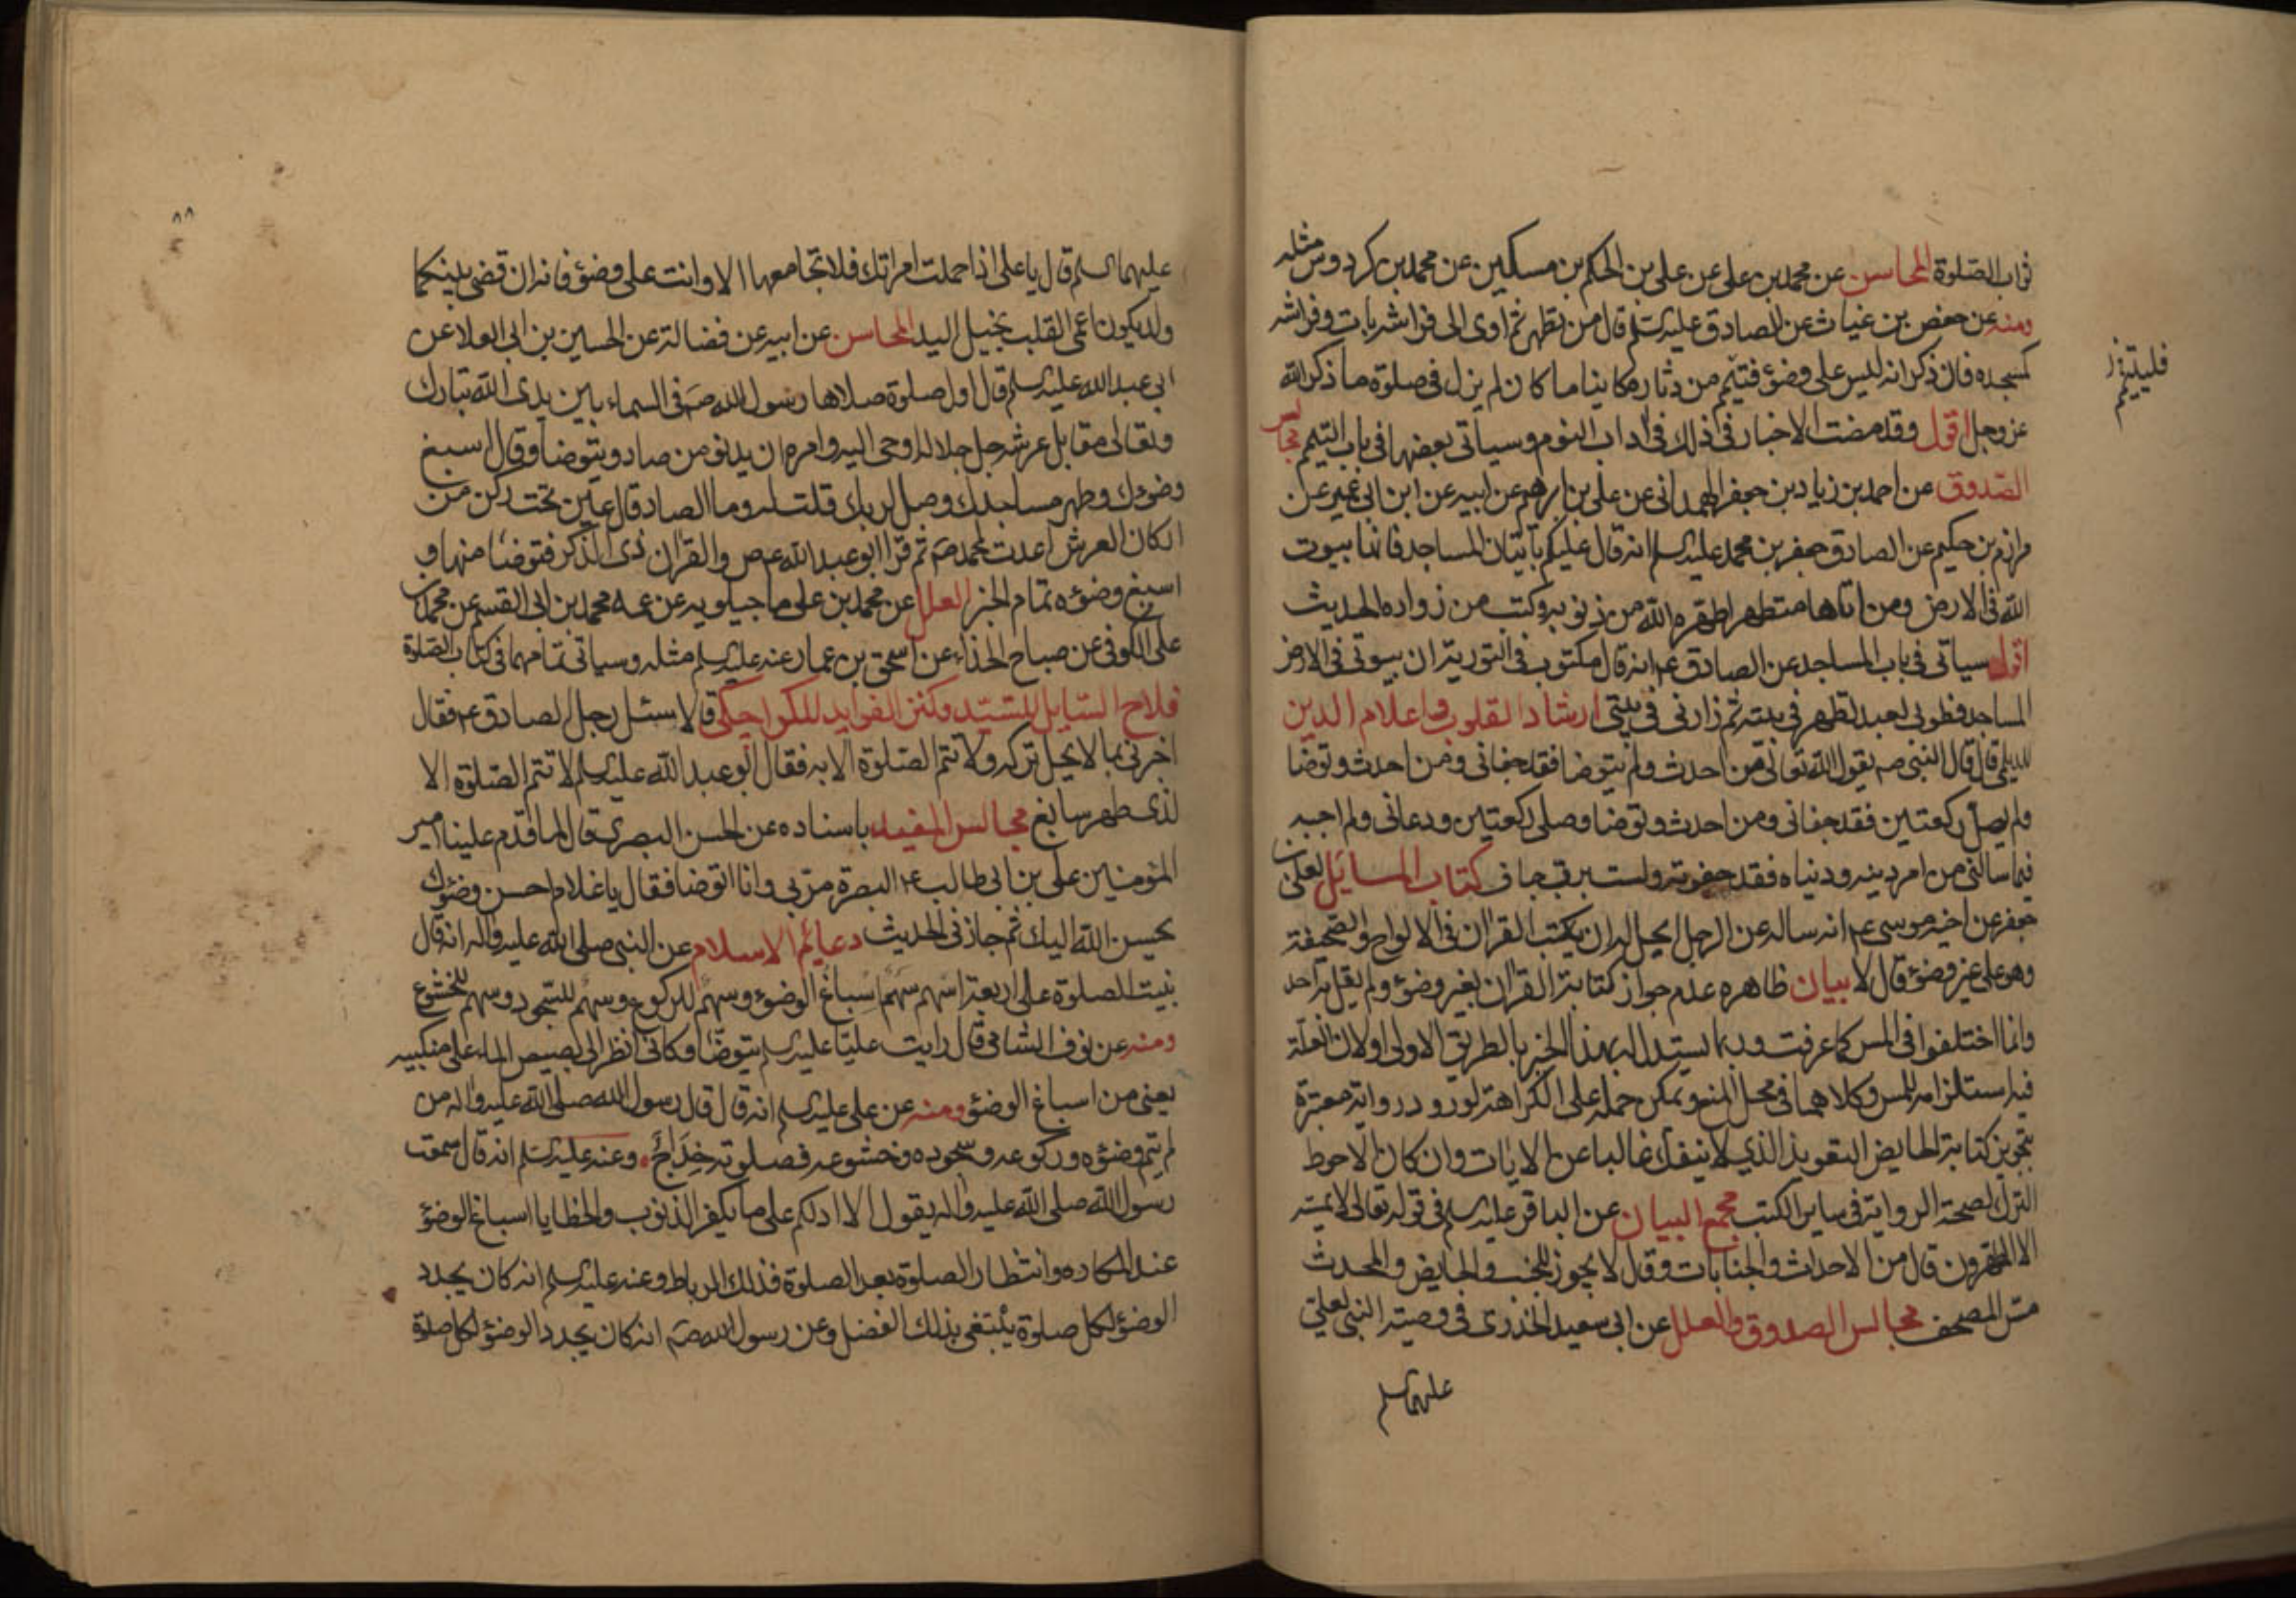 ثواب الصلوة المحاسن عن محمد بن على عن على بن الحكم بن مسكين عن محمد بن كردوس مثله
ومنه عن حفص بن غياث عن الصادق عليه السلم قال من تطهر ثم اوى الى فراشه بات وفراشه
كمسجده فان ذكر انه ليس على وضؤ فتيمم من دثاره كاينا ما كان لم يزل فى صلوة ما ذكر الله
فليتيمم
عز وجل اقول وقد مضت الاخبار فى ذلك فى اداب النوم وسياتى بعضها فى باب التيمم مجالس
الصدوق عن احمد بن زياد بن جعفر الهمدانى عن على بن ابرهيم عن ابيه عن ابن ابى عمير عن
مرازم بن حكيم عن الصادق جعفر بن محمد عليه السلم انه قال عليكم باتيان المساجد فانها بيوت
الله فى الارض ومن اتاها متطهرا طهره الله من ذنوبه وكتب من زواره الحديث
اقول سياتى فى باب المساجد عن الصادق ع انه قال مكتوب فى التورية ان بيوتى فى الارض
المساجد فطوبى لعبد تطهر فى بيته ثم زارنى فى بيتى ارشاد القلوب واعلام الدين
للديلمى قال قال النبى ص يقول الله تعالى من احدث ولم يتوضا فقد جفانى ومن احدث وتوضا
ولم يصل ركعتين فقد جفانى ومن احدث وتوضا وصلى ركعتين ودعانى ولم اجبه
فيما سالنى من امر دينه ودنياه فقد جفوته ولست برب جاف كتاب المسايل لعلى بن
جعفر عن اخيه موسى ع انه ساله عن الرجل ايحل له ان يكتب القران فى الالواح والصحيفة
وهو على غير وضؤ قال لا بيان ظاهره عدم جواز كتابة القران بغير وضؤ ولم يقل به احد
وانما اختلفوا فى المس كما عرفت وربما يستدل له بهذا الخبر بالطريق الاولى او لان العلة
فيه استلزامه للمس وكلاهما فى محل المنع ويمكن حمله على الكراهة لورود رواية معتبرة
بتجويز كتابة الحايض التعويذ الذى لا ينفك غالبا عن الايات وان كان الاحوط
الترك لصحة الرواية فى ساير الكتب مجمع البيان عن الباقر عليه السلم فى قوله تعالى لا يمسه
الا المطهرون قال من الاحداث والجنابات وقال لا يجوز للجنب والحايض والمحدث
مس المصحف مجالس الصدوق والعلل عن ابى سعيد الخدرى فى وصية النبى لعلى
عليهما السلم
٨٨
عليهما السلم قال يا على اذا حملت امراتك فلا تجامعها الا وانت على وضؤ فانه ان قضى بينكما
ولد يكون اعمى القلب بخيل اليد المحاسن عن ابيه عن فضالة عن الحسين بن ابى العلا عن
ابى عبد الله عليه السلم قال اول صلوة صلاها رسول الله ص فى السماء بين يدى الله تبارك
وتعالى مقابل عرشه جل جلاله اوحى اليه وامره ان يدنو من صاد ويتوضا وقال اسبغ
وضوءك وطهر مساجدك وصل لربك قلت له وما الصاد قال عين تحت ركن من
اركان العرش اعدت لمحمد ص ثم قرا ابو عبد الله ع ص والقران ذى الذكر فتوضا منها و
اسبغ وضؤه تمام الخبر العلل عن محمد بن على ماجيلويه عن عمه محمد بن ابى القسم عن محمد بن
على الكوفى عن صباح الحذاء عن اسحق بن عمار عنه عليه السلم مثله وسياتى تمامهما فى كتاب الصلوة
فلاح السايل للسيد وكنز الفوايد للكراجكى قالا سئل رجل الصادق ع فقال
اخبرنى بما لا يحل تركه ولا تتم الصلوة الا به فقال ابو عبد الله عليه السلم لا تتم الصلوة الا
لذى طهر سابغ مجالس المفيد باسناده عن الحسن البصرى قال لما قدم علينا امير
المؤمنين على بن ابى طالب ع البصرة مر بى وانا اتوضا فقال يا غلام احسن وضؤك
يحسن الله اليك ثم جاز فى الحديث دعايم الاسلام عن النبى صلى الله عليه واله انه قال
بنيت الصلوة على اربعة اسهم سهم اسباغ الوضوء وسهم للركوع وسهم للسجود وسهم للخشوع
ومنه عن نوف الشامى قال رايت عليا عليه السلم يتوضا وكانى انظر الى بصيص الماء على منكبيه
يعنى من اسباغ الوضؤ ومنه عن على عليه السلم انه قال قال رسول الله صلى الله عليه واله من
لم يتم وضؤه وركوعه وسجوده وخشوعه فصلوته خداج وعنه عليه السلم انه قال سمعت
رسول الله صلى الله عليه واله يقول الا ادلكم على ما يكفر الذنوب والخطايا اسباغ الوضؤ
عند المكاره وانتظار الصلوة بعد الصلوة فذلك الرباط وعنه عليه السلم انه كان يجدد
الوضؤ لكل صلوة يبتغى بذلك الفضل وعن رسول الله ص انه كان يجدد الوضؤ لكل صلوة